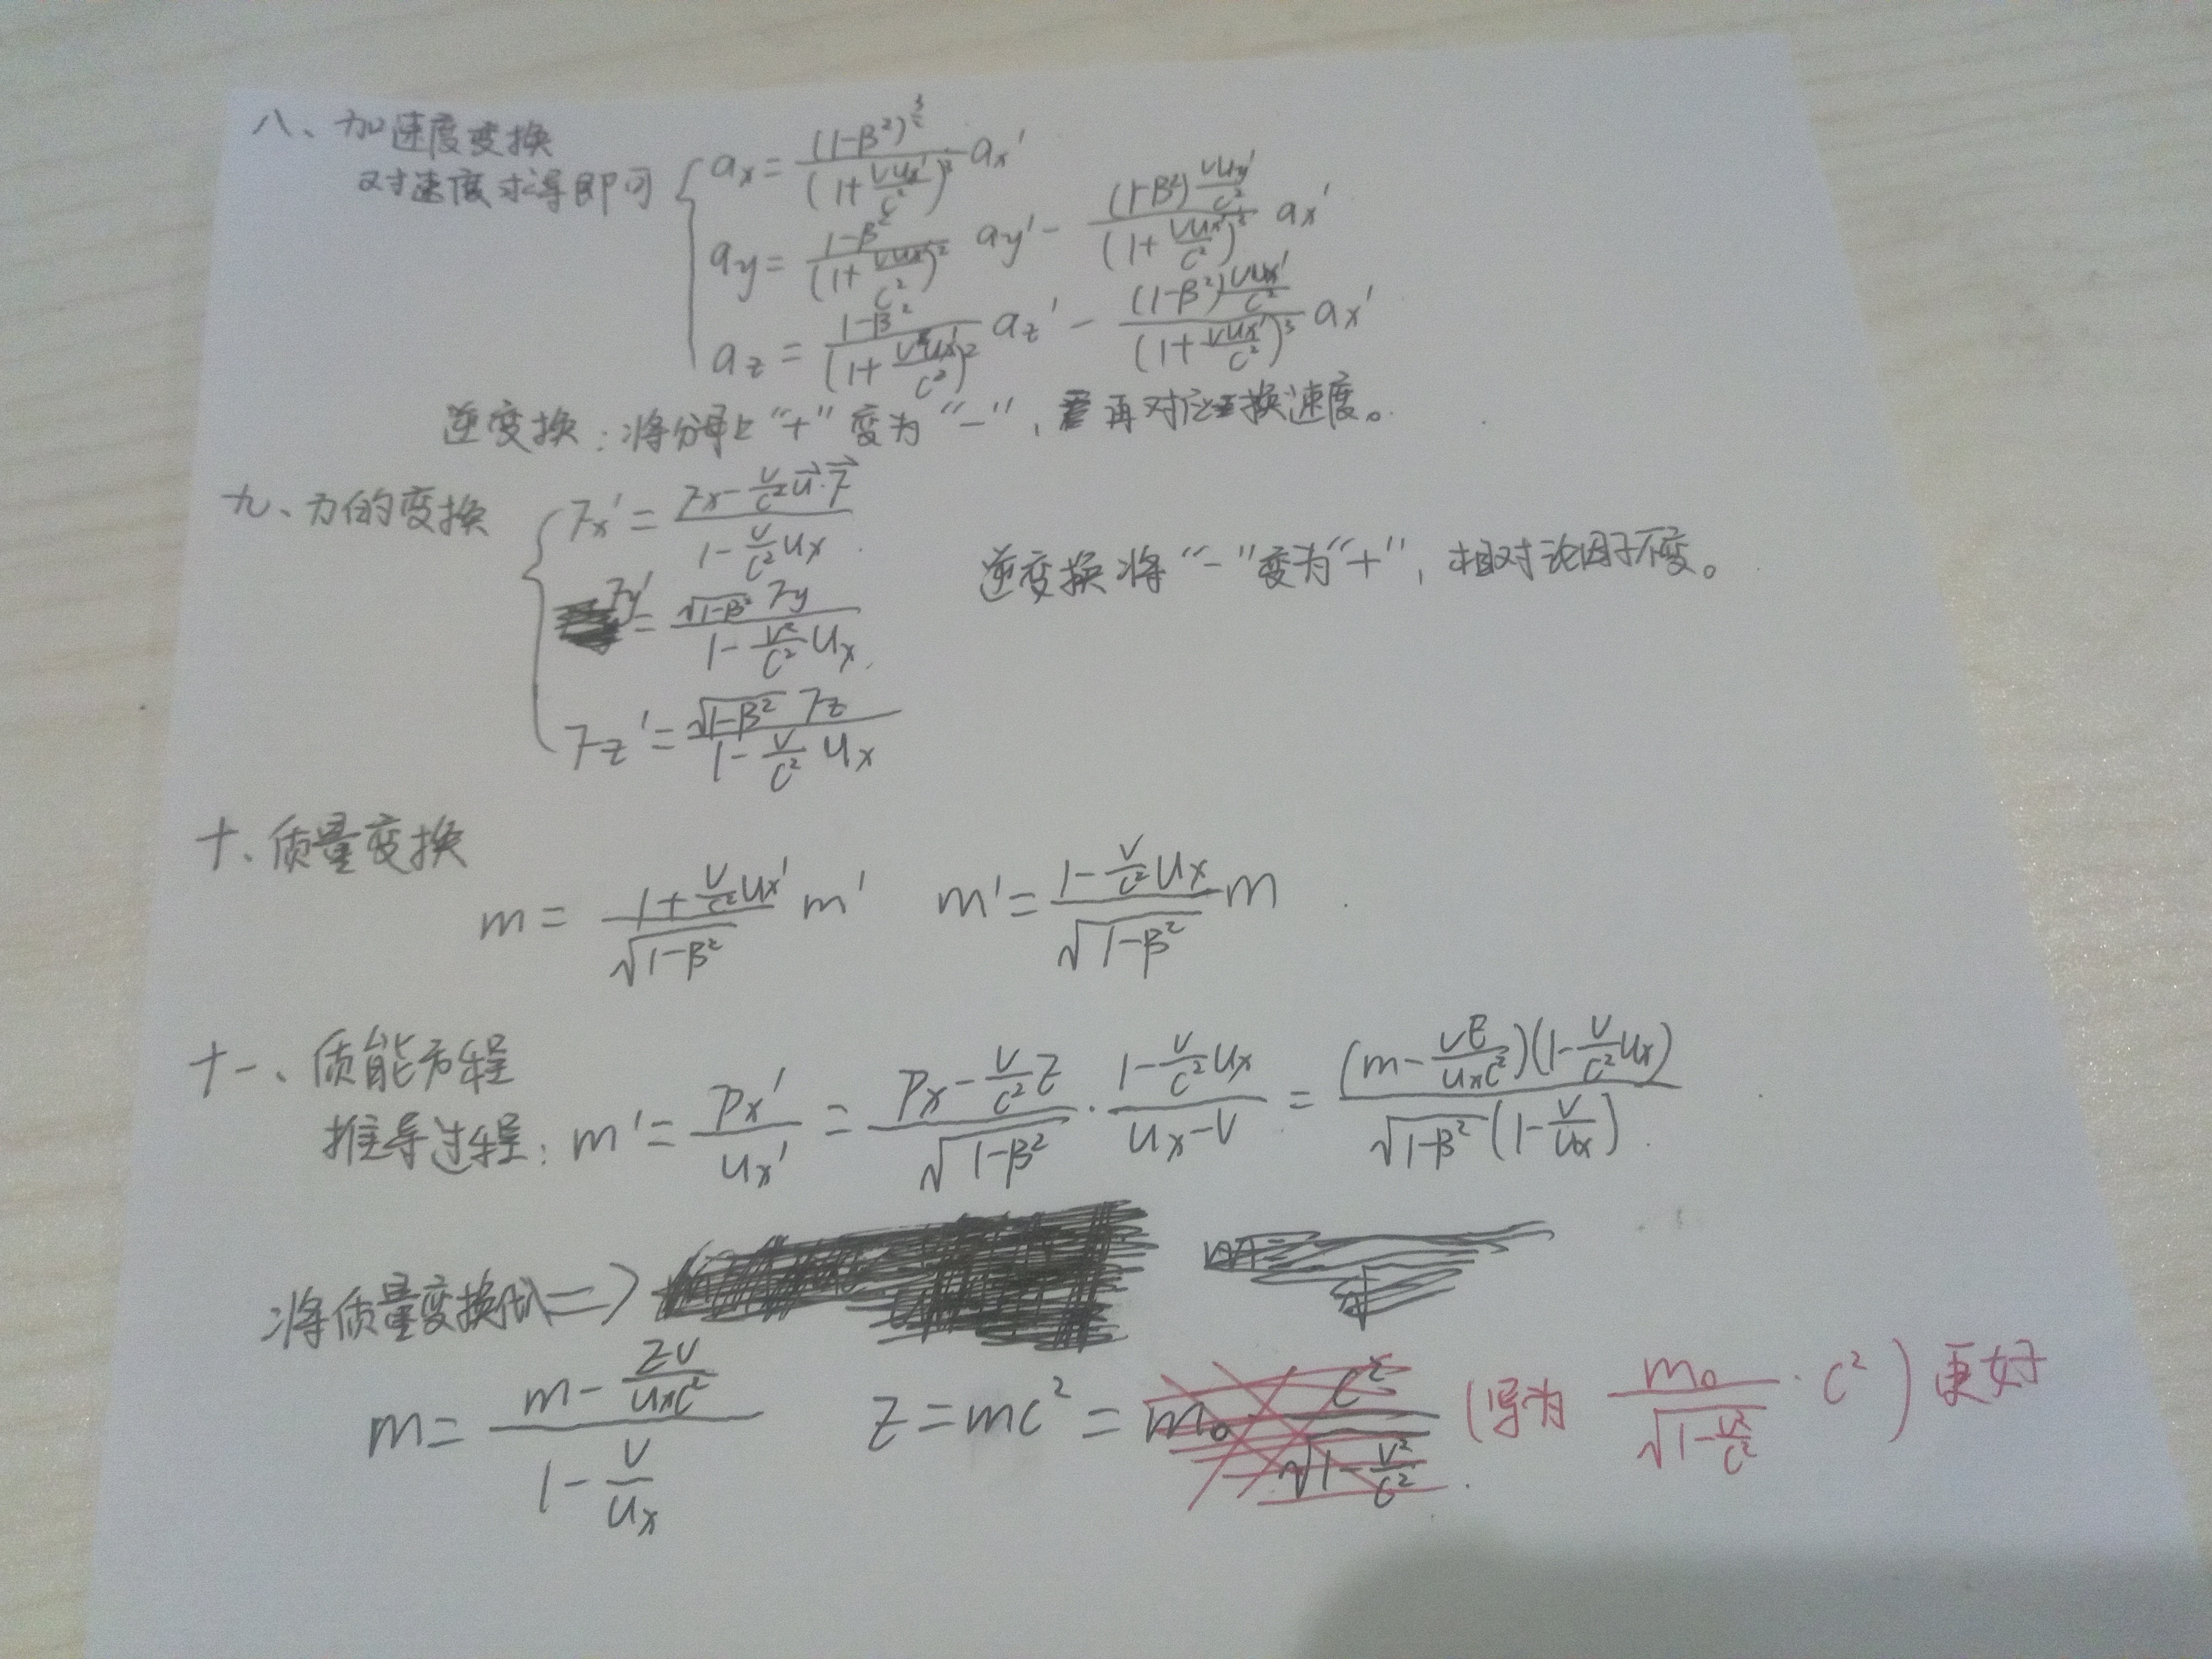 八、加速度变换
对速度求导即可 { ax = (1-β²)^(3/2) / (1+vux'/c²)³ ax'
ay = (1-β²) / (1+vux'/c²)² ay' - (1-β²) vuy'/c² / (1+vux'/c²)³ ax'
az = (1-β²) / (1+vux'/c²)² az' - (1-β²) vux'/c² / (1+vux'/c²)³ ax'
逆变换:将分母上“+”变为“-”,再对应换速度。
九、力的变换 { Fx' = (Fx - v/c² u⃗·F⃗) / (1 - v/c² ux)
Fy' = √(1-β²) Fy / (1 - v²/c² ux)
逆变换将“-”变为“+”,相对论因子不变。
Fz' = √(1-β²) Fz / (1 - v/c² ux)
十、质量变换
m = (1 + v/c² ux') / √(1-β²) m' m' = (1 - v/c² ux) / √(1-β²) m
十一、质能方程
推导过程:m' = px'/ux' = (px - v/c² E) / √(1-β²) · (1 - v/c² ux) / (ux - v) = (m - vE/(uxc²))(1 - v/c² ux) / (√(1-β²) (1 - v/ux))
将质量变换代入=>
m = (m - Ev/(uxc²)) / (1 - v/ux) E = mc² = m₀ c² / √(1 - v²/c²) (写为 m₀ / √(1 - v²/c²) · c²) 更好